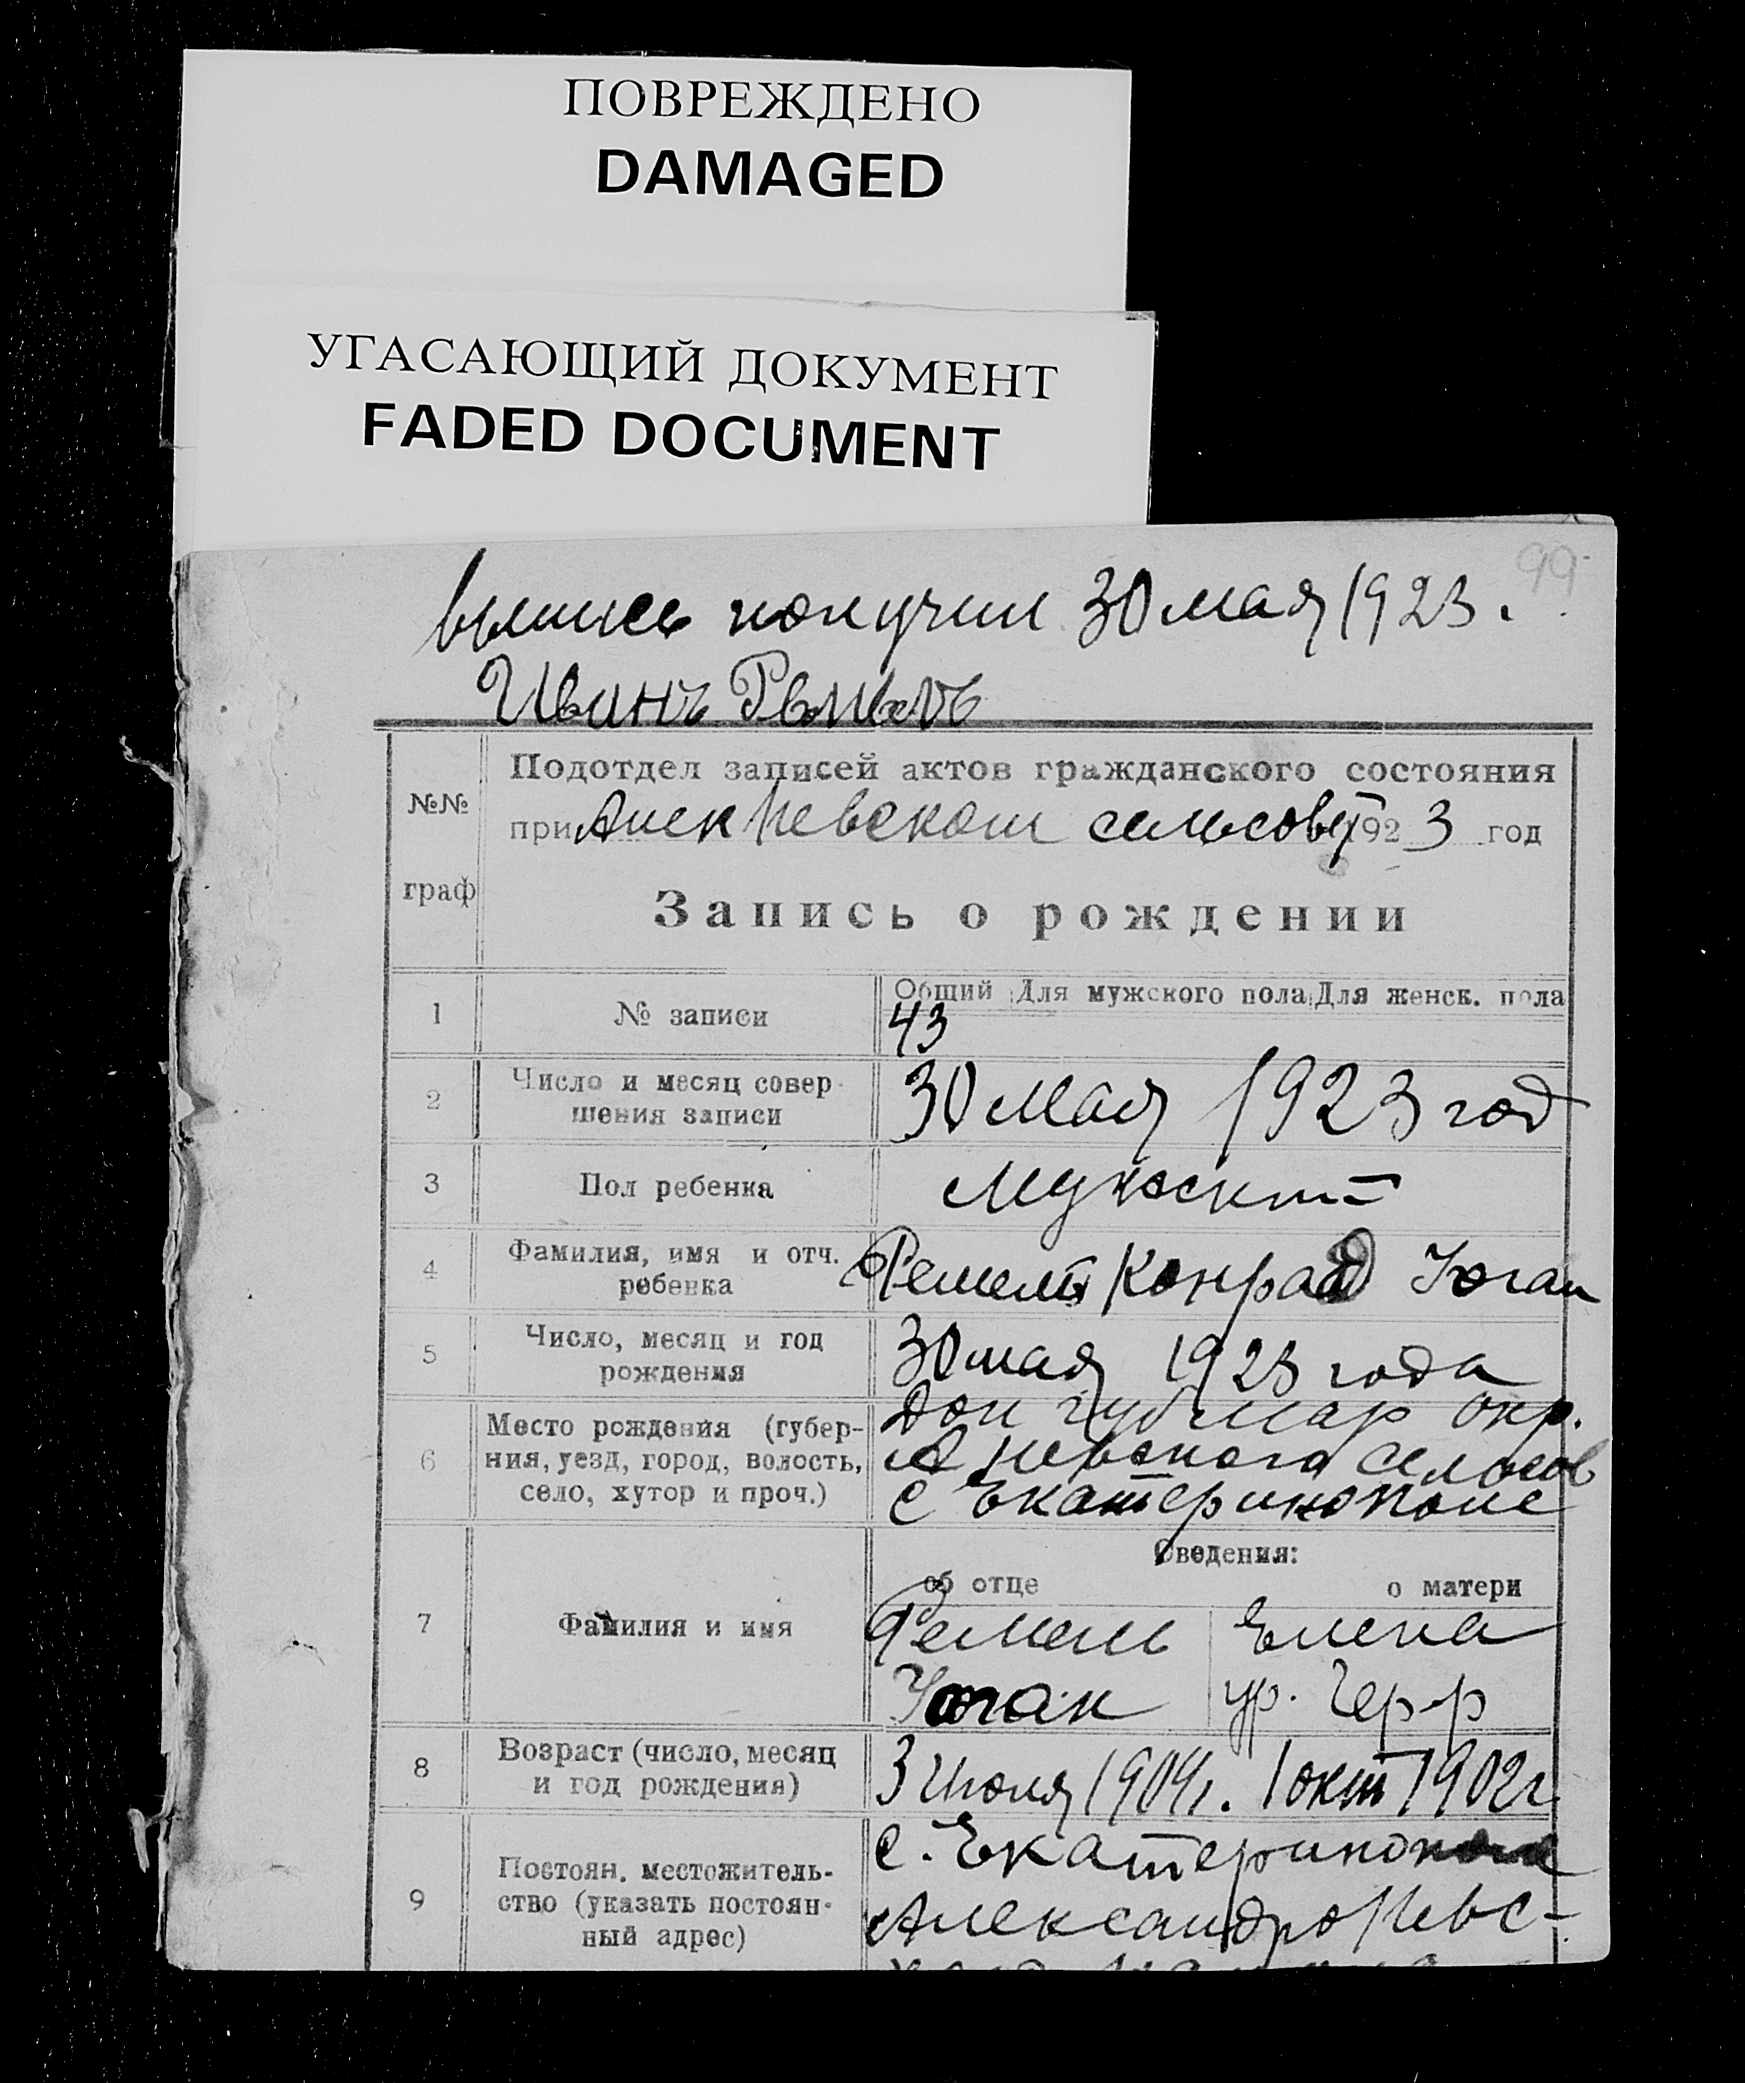 ПОВРЕЖДЕНО
DAMAGED
УГАСАЮЩИЙ ДОКУМЕНТ
FADED DOCUMENT
99
выпись получил 30 мая 1923.
Иванъ
№№
граф
Подотдел записей актов гражданского состояния
при Алек Невском сельсовет 1923 год
Запись о рождении
Общий Для мужского пола Для женск. пола
1 № записи 43
2 Число и месяц совер-
шения записи
30 мая 1923 год
3 Пол ребенка Мужской
4 Фамилия, имя и отч.
ребенка
Ремель Конрад Йоган
5 Число, месяц и год
рождения
30 мая 1923 года
6 Место рождения (губер-
ния, уезд, город, волость,
село, хутор и проч.)
Дон губ мар окр.
А Невского сельсов
с Екатеринополе
Сведения:
об отце о матери
7 Фамилия и имя
Ремель Елена
Йоган ур. Герр
8 Возраст (число, месяц
и год рождения)
3 Июля 1904г. 1 окт 1902г
9 Постоян. местожитель-
ство (указать постоян-
ный адрес)
с. Екатеринополе
Александро Невс-